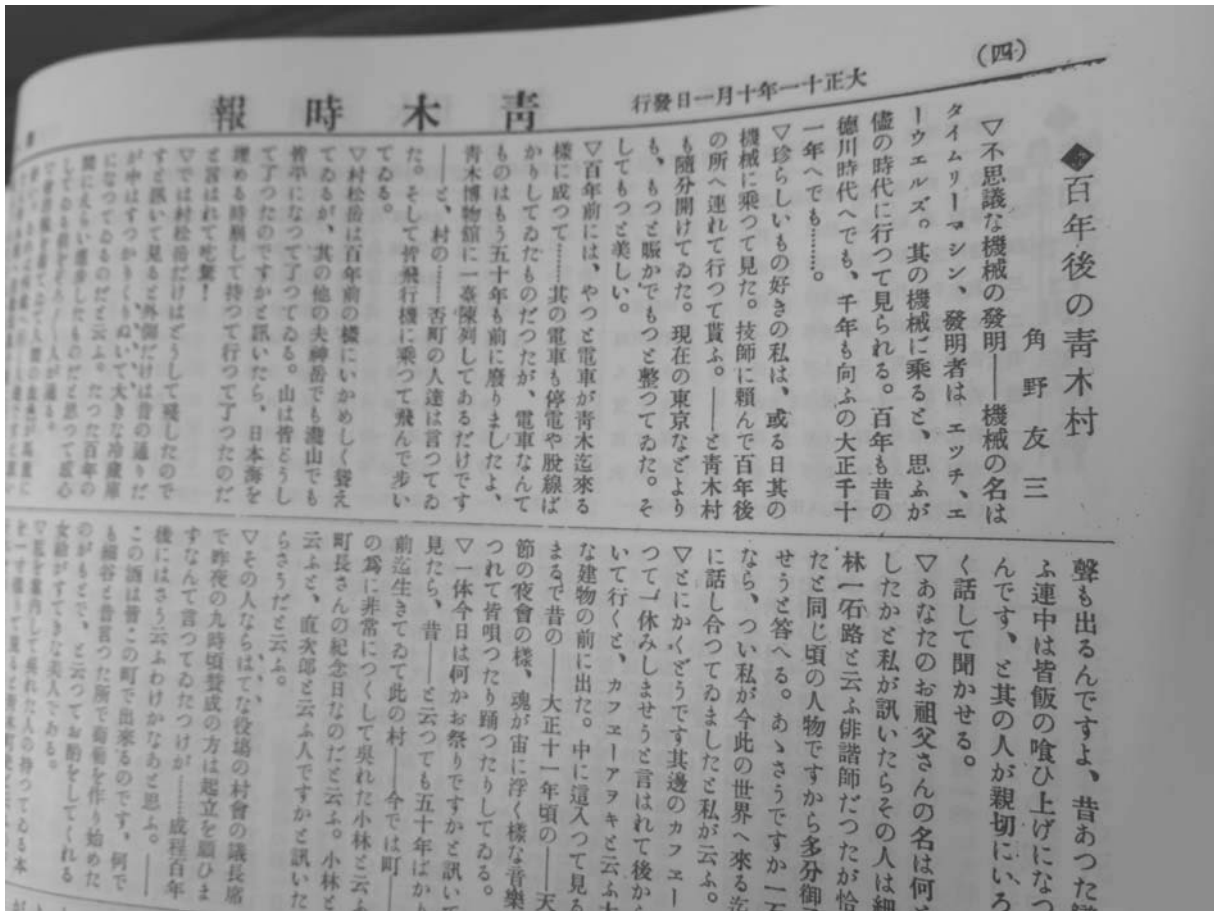 (四)
大正十一年十月一日發行
青木時報
◆百年後の青木村
角野友三
▽不思議な機械の發明――機械の名は
タイムリーマシン、發明者はエッチ、エ
ーウエルズ。其の機械に乗ると、思ふが
儘の時代に行つて見られる。百年も昔の
德川時代へでも、千年も向ふの大正千十
一年へでも……。
▽珍らしいもの好きの私は、或る日其の
機械に乗つて見た。技師に賴んで百年後
の所へ連れて行つて貰ふ。――と青木村
も隨分開けてゐた。現在の東京などより
も、もつと賑かでもつと整つてゐた。そ
してもつと美しい。
▽百年前には、やつと電車が青木迄來る
樣に成つて……其の電車も停電や脫線ば
かりしてゐたものだつたが、電車なんて
ものはもう五十年も前に廢りましたよ、
青木博物館に一臺陳列してあるだけです
――と、村の……否町の人達は言つてゐ
た。そして皆飛行機に乗つて飛んで步い
てゐる。
▽村松岳は百年前の樣にいかめしく聳え
てゐるが、其の他の夫神岳でも瀧山でも
皆平くなつて了つてゐる。山は皆どうし
て了つたのですかと訊いたら、日本海を
理める時崩して持つて行つて了つたのだ
と言はれて吃驚!
▽では村松岳だけはどうして殘したので
すと訊いて見ると外側だけは昔の通りだ
が中はすつかりくりぬいて大きな冷藏庫
になつてゐるものだと云ふ。たつた百年の
間にえらい進步したものだと思つて感心
聲も出るんですよ、昔あつた
ふ連中は皆飯の喰ひ上げになつ
んです、と其の人が親切にいろ
く話して聞かせる。
▽あなたのお祖父さんの名は何
したかと私が訊いたらその人は細
林一石路と云ふ俳諧師だつたが恰
たと同じ頃の人物ですから多分御
せうと答へる。あゝさうですか一石
なら、つい私が今此の世界へ來る迄
に話し合つてゐましたと私が云ふ。
▽とにかくどうです其邊のカフエー
つて一休みしませうと言はれて後か
いて行くと、カフエーアヲキと云ふ大
な建物の前に出た。中に這入つて見る
まるで昔の――大正十一年頃の――天
節の夜會の樣、魂が宙に浮く樣な音樂
つれて皆唄つたり踊つたりしてゐる。
▽一体今日は何かお祭りですかと訊いて
見たら、昔――と云つても五十年ばかり
前迄生きてゐて此の村――今では町――
の爲に非常につくして吳れた小林と云ふ
町長さんの紀念日なのだと云ふ。小林と
云ふと、直次郎と云ふ人ですかと訊いた
らさうだと云ふ。
▽その人ならはてな役場の村會の議長席
で昨夜の九時頃賛成の方は起立を願ひま
すなんて言つてゐたつけが……成程百年
後にはさう云ふわけかなあと思ふ。――
この酒は皆この町で出來るのです、何で
も細谷と昔言つた所で葡萄を作り始めた
のがもとで、と云つてお酌をしてくれる
女給がすてきな美人である。